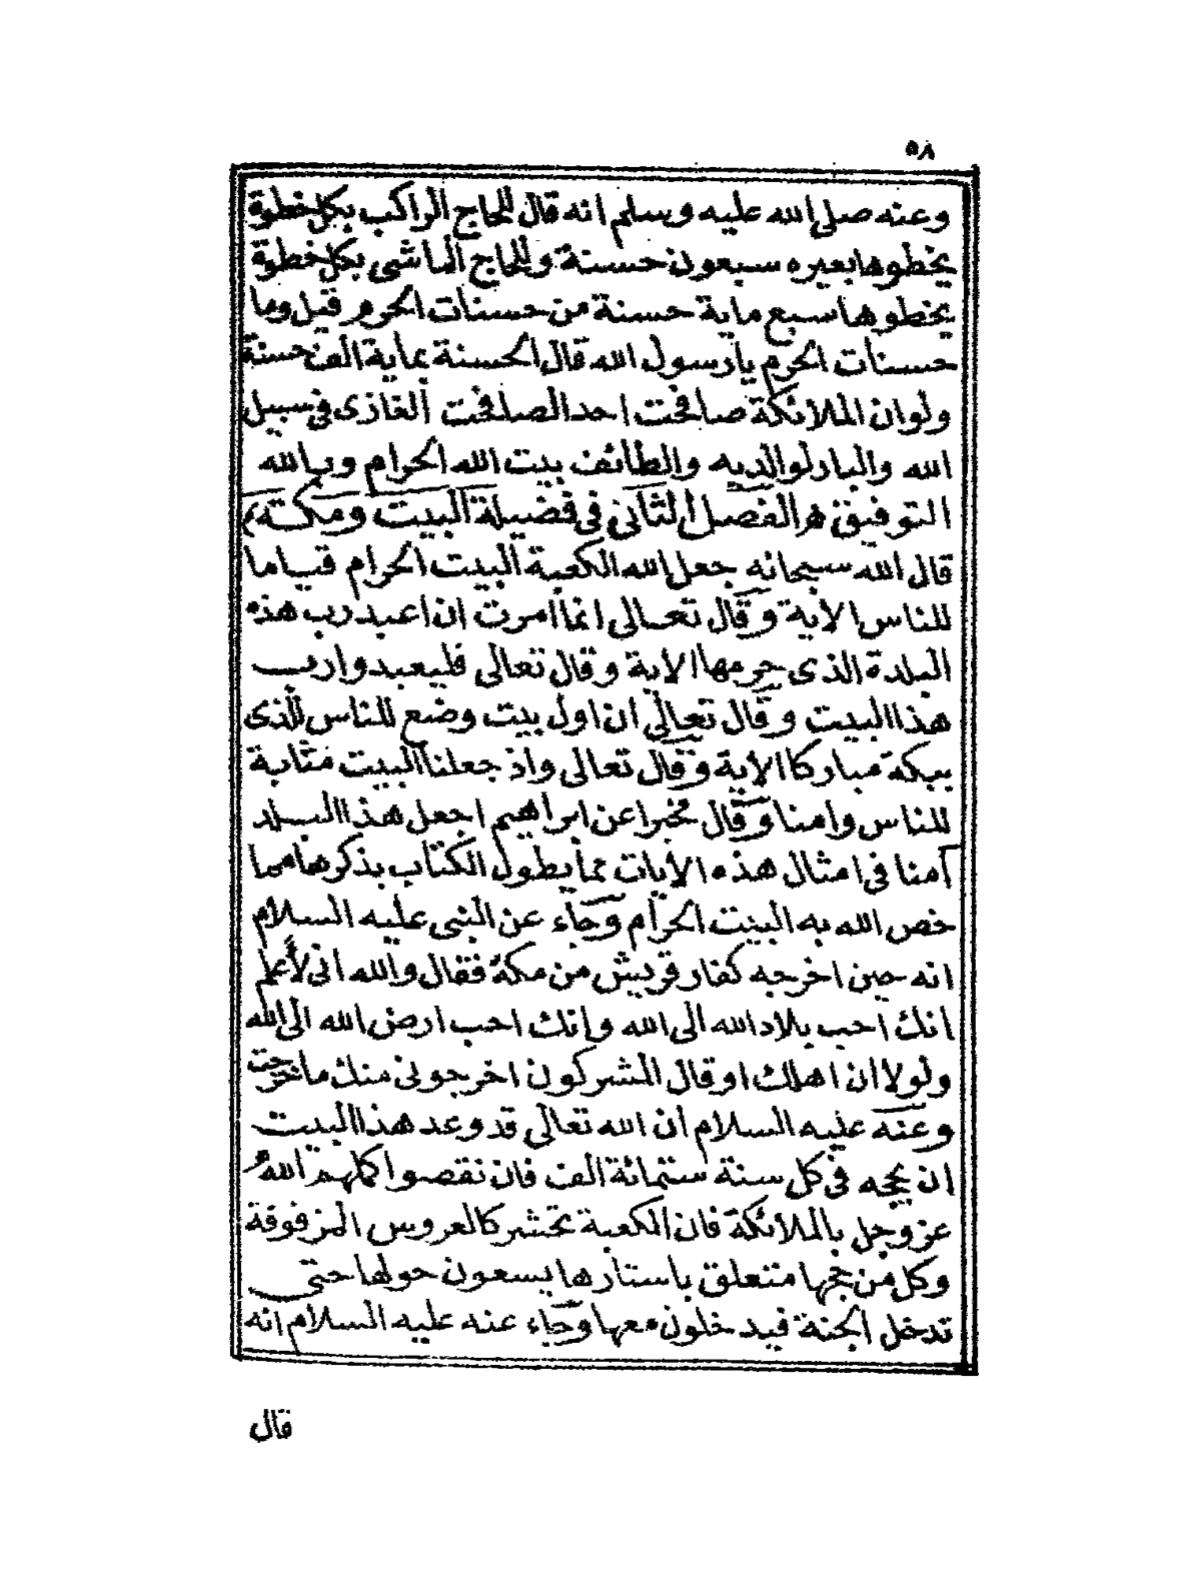 ٥٨
وعنه صلى الله عليه وسلم انه قال للحاج الراكب بكل خطوة
يخطوها بعيره سبعون حسنة وللحاج الماشي بكل خطوة
يخطوها سبع ماية حسنة من حسنات الحرم قيل وما
حسنات الحرم يا رسول الله قال الحسنة بماية الف حسنة
ولو ان الملائكة صافحت احد الصافحت الغازى فى سبيل
الله والبار لوالديه والطائف ببيت الله الحرام وبالله
التوفيق الفصل الثانى فى فضيلة البيت ومكة
قال الله سبحانه جعل الله الكعبة البيت الحرام قياما
للناس الاية وقال تعالى انما امرت ان اعبد رب هذه
البلدة الذى حرمها الاية وقال تعالى فليعبدوا رب
هذا البيت وقال تعالى ان اول بيت وضع للناس للذى
ببكة مباركا الاية وقال تعالى واذ جعلنا البيت مثابة
للناس وامنا وقال مخبرا عن ابراهيم اجعل هذا البلد
آمنا فى امثال هذه الايات مما يطول الكتاب بذكرها مما
خص الله به البيت الحرام وجاء عن النبى عليه السلام
انه حين اخرجه كفار قريش من مكة فقال والله انى لأعلم
انك احب بلاد الله الى الله وانك احب ارض الله الى الله
ولولا ان اهلك او قال المشركون اخرجونى منك ما خرجت
وعنه عليه السلام ان الله تعالى قد وعد هذا البيت
ان يحجه فى كل سنة ستمائة الف فان نقصوا كملهم الله
عز وجل بالملائكة فان الكعبة تحشر كالعروس المزفوفة
وكل من حجها متعلق باستارها يسعون حولها حتى
تدخل الجنة فيدخلون معها وجاء عنه عليه السلام انه
قال